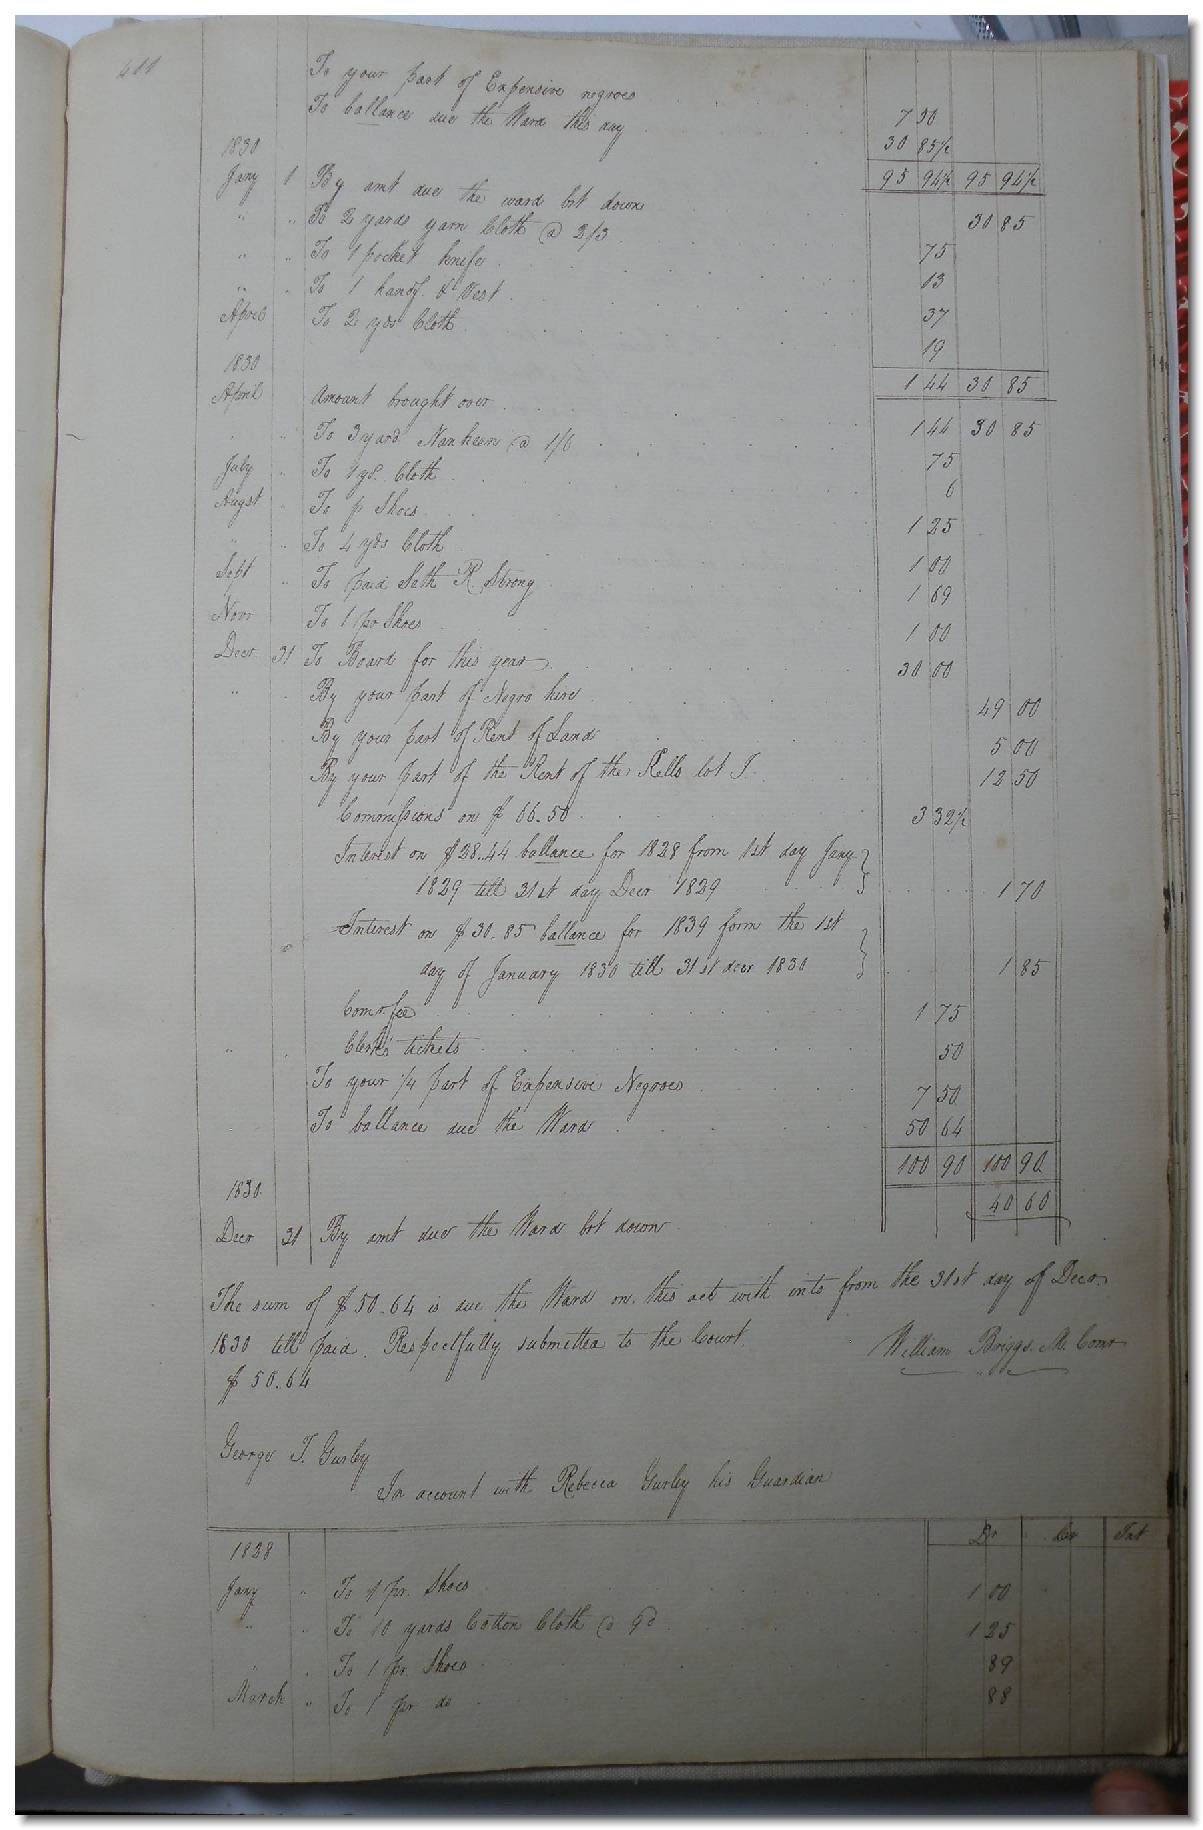 To your part of Expensive negroes 7 50
To ballance due the Ward this day 30 85½
95 94½ 95 94½
1830
Jany 1 By amt due the ward bt down 30 85
" " To 2 yards yarn Cloth @ 2/3 75
" " To 1 pocket knife 13
" " To 1 handf. & Vest 37
April To 2 yds Cloth 19
1830 1 44 30 85
April Amount brought over 1 44 30 85
" " To 3 yard Nankeen @ 1/6 75
July " To 1 yd. Cloth 6
Augst " To p Shoes 1 25
" " To 4 yds Cloth 1 00
Sept " To paid Seth R. Strong 1 69
Novr To 1 pr Shoes 1 00
Decr 31 To Board for this year 30 00
" " By your part of Negro hire 49 00
By your part of Rent of Land 5 00
By your part of the Rent of the Rells lot J. 12 50
Commissions on $ 66.50 3 32½
Interest on $28.44 ballance for 1828 from 1st day Jany
1829 till 31st day Decr 1829 1 70
Interest on $30.85 ballance for 1839 form the 1st
day of January 1830 till 31st decr 1830 1 85
Comr fee 1 75
" " Clerk's tickets 50
To your 1/4 part of Expensive Negroes 7 50
To ballance due the Ward 50 64
100 90 100 90
1830
Decr 31 By amt due the Ward bt down 40 60
The sum of $50.64 is due the Ward on this act with ints from the 31st day of Decr
1830 till paid. Respectfully submitted to the Court.
$ 50.64 William Briggs. M. Comr
George T. Gurley
In account with Rebecca Gurley his Guardian
Dr Cr Int
1828
Jany " To 1 pr. Shoes 1 00
" " To 10 yards Cotton Cloth @ 9d 1 25
" " To 1 pr. Shoes 89
March " To 1 pr do 88